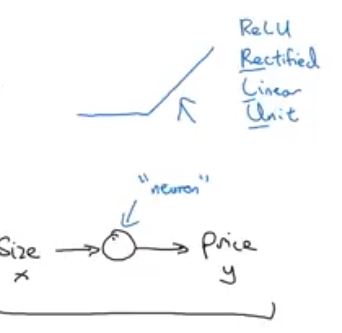 ReLU
Rectified
Linear
Unit
"neuron"
size price
x y